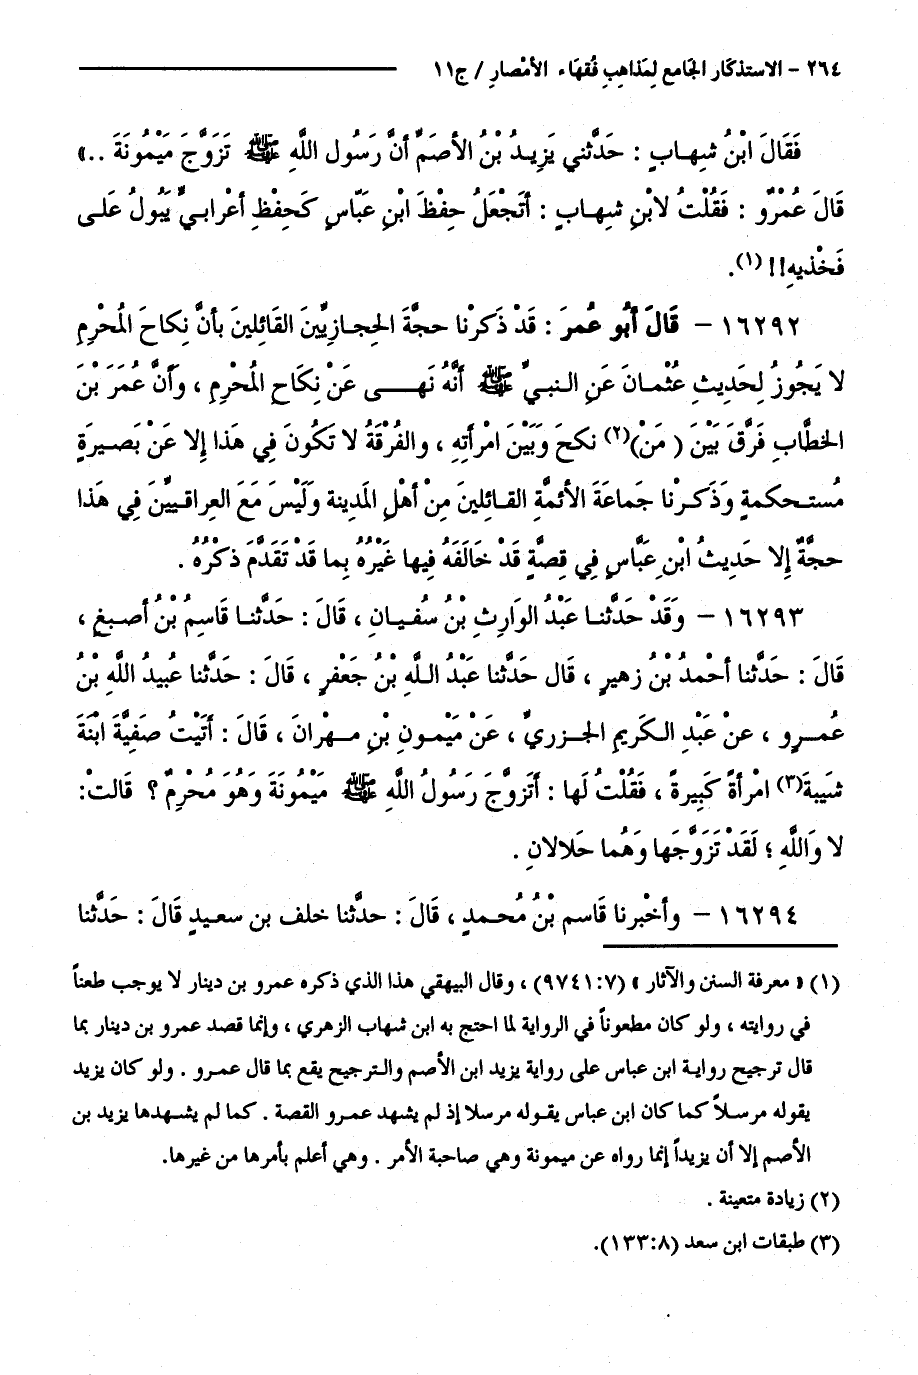 ٢٦٤ - الاستذكار الجامع لِمَذاهِبِ فُقهَاء الأمْصارِ / ج١١
فَقَالَ ابْنُ شِهـابٍ : حَدَّثني يَزِيـدُ بْنُ الأصَمِّ أنَّ رَسُول اللَّهِ ﷺ تَزَوَّجَ مَيْمُونَةَ ..»
قَالَ عُمْرٌو : فَقُلْتُ لابْنِ شِهابٍ : أتَجْعَلُ حِفْظَ ابْنِ عَبّاسٍ كَحِفْظِ أعْرابيٍّ يَبُولُ عَلى
فَخْذيهِ!! (١).
١٦٢٩٢ - قَالَ أبُو عُمرَ : قَدْ ذَكَرْنا حجَّةَ الحِجازيِّينَ القَائلينَ بأنَّ نِكاحَ المُحْرِمِ
لا يَجُوزُ لِحَديثِ عُثْمانَ عَنِ النبيِّ ﷺ أنَّهُ نَهـــى عَنْ نِكَاحِ المُحْرِمِ ، وَأنَّ عُمَرَ بْنَ
الخطَّابِ فَرَّقَ بَيْنَ ( مَنْ)(٢) نكحَ وَبَيْنَ امْرأتِهِ ، والفُرْقَةُ لا تَكُونَ فِي هَذا إلا عَنْ بَصيرَةٍ
مُستـحكمةٍ وَذَكـرْنا جَماعَةَ الأئمَّةِ القـائلينَ مِنْ أهْلِ المَدينة وَلَيْسَ مَعَ العراقـيِّينَ فِي هَذا
حجَّةٌ إلا حَديثُ ابْنِ عَبَّاسٍ فِي قِصَّةٍ قَدْ خَالَفَهُ فِيها غَيْرُهُ بِما قَدْ تَقَدَّمَ ذكْرُهُ .
١٦٢٩٣ - وَقَدْ حَدَّثنـا عَبْدُ الوَارِثِ بْنُ سُفْيـانَ ، قَالَ : حَدَّثنـا قَاسِمُ بْنُ أصبغٍ ،
قَالَ : حَدَّثنا أحْمدُ بْنُ زهيرٍ ، قَال حَدَّثنا عَبْدُ اللَّهِ بْنُ جَعْفرٍ ، قَالَ : حَدَّثنا عُبيدُ اللَّهِ بْنُ
عُمـرٍو ، عَنْ عَبْدِ الكَريمِ الجـزريِّ ، عَنْ مَيْمـونِ بْنِ مـهْرانَ ، قَالَ : أتَيْتُ صَفِيَّةَ ابْنَةَ
شَيبَةَ(٣) امْرأةً كَبِيرةً ، فَقُلْتُ لَها : أتَزوَّجَ رَسُولُ اللَّهِ ﷺ مَيْمُونَةَ وَهُوَ مُحْرِمٌ ؟ قَالت:
لا وَاللَّهِ ؛ لَقَدْ تَزَوَّجَها وَهُما حَلالانِ .
١٦٢٩٤ - وأخْبرنا قَاسم بْنُ مُحمدٍ ، قَالَ : حدَّثنا خلف بن سعيدٍ قَالَ : حَدَّثنا
(١) « معرفة السنن والآثار » (٧:٩٧٤١) ، وقال البيهقي هذا الذي ذكره عمرو بن دينار لا يوجب طعناً
في روايته ، ولو كان مطعوناً في الرواية لما احتج به ابن شهاب الزهري ، وإنما قصد عمرو بن دينار بما
قال ترجيح روايـة ابن عباس على رواية يزيد ابن الأصم والترجيح يقع بما قال عمـرو . ولو كان يزيد
يقوله مرسـلاً كما كان ابن عباس يقـوله مرسلا إذ لم يشهد عمـرو القصة . كما لم يشـهدها يزيد بن
الأصم إلا أن يزيداً إنما رواه عن ميمونة وهي صاحبة الأمر . وهي أعلم بأمرها من غيرها.
(٢) زيادة متعينة .
(٣) طبقات ابن سعد (٨:١٣٣).